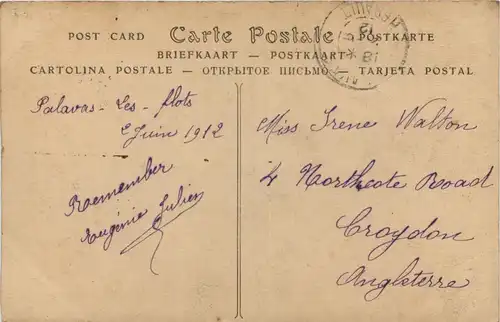 POST CARD Carte Postale POSTKARTE
BRIEFKAART — POSTKAART
CARTOLINA POSTALE — ОТКРЫТОЕ ПИСЬМО — TARJETA POSTAL
Palavas-les-flots
2 Juin 1912
Roemember
Eugénie Julien
Miss Irene Walton
4 Northcote Road
Croydon
Angleterre